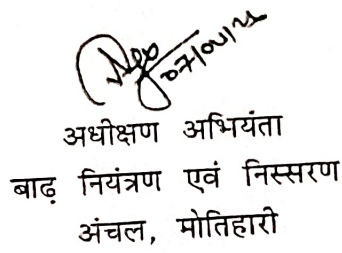 अधीक्षण अभियंता
बाढ़ नियंत्रण एवं निस्सरण
अंचल, मोतिहारी